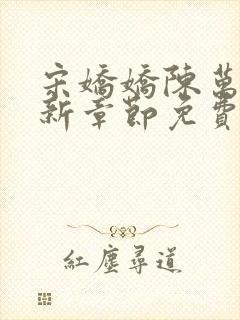 宋嬌嬌陳萬
新章節免費
紅塵尋道